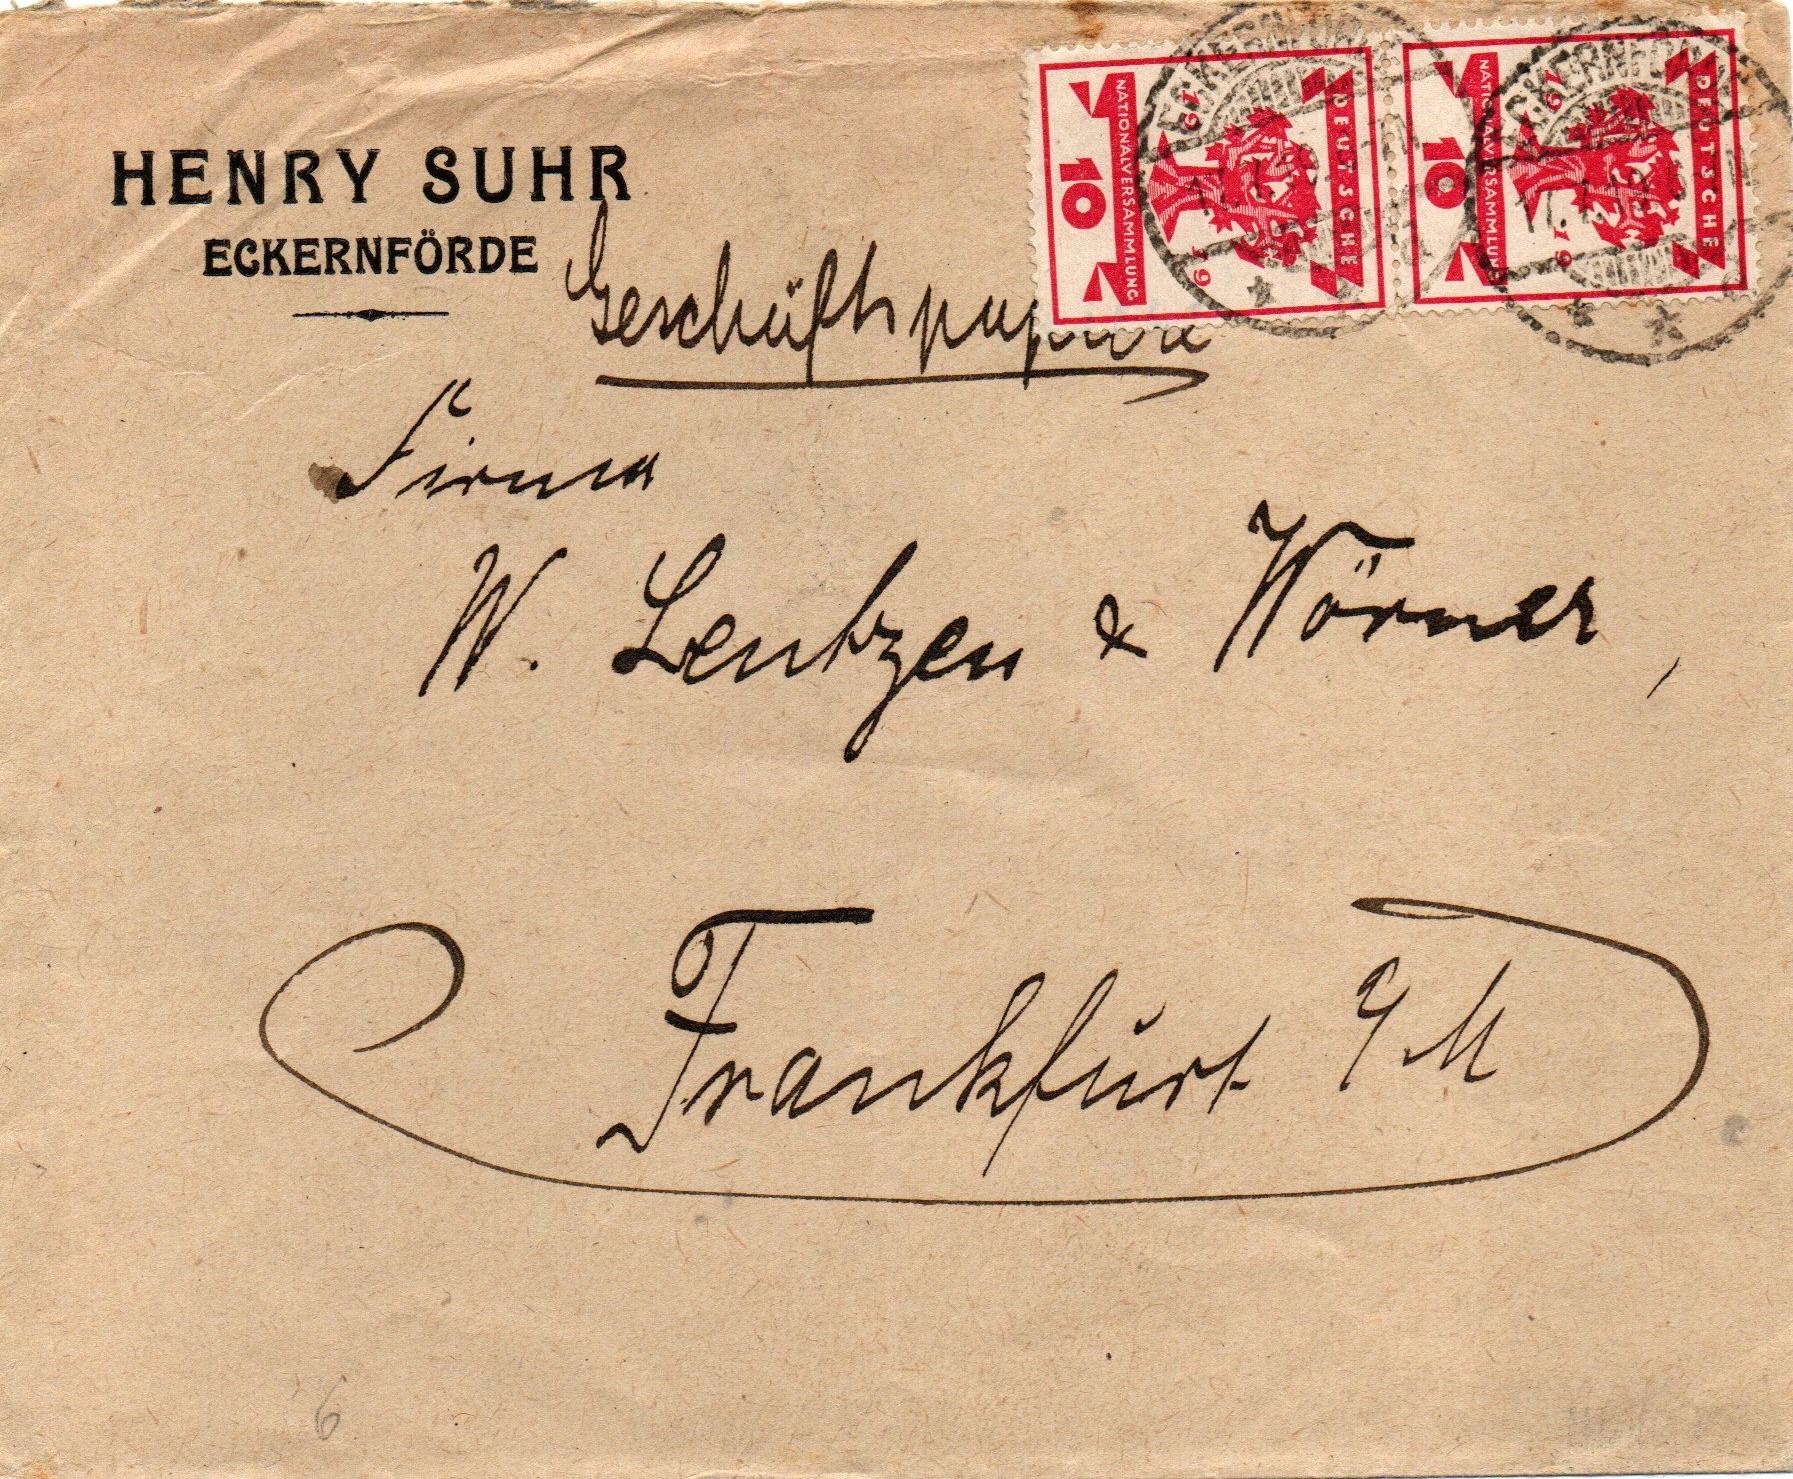 HENRY SUHR
ECKERNFÖRDE
Geschäftspapiere
DEUTSCHE
NATIONALVERSAMMLUNG
1919
10
DEUTSCHE
NATIONALVERSAMMLUNG
1919
10
ECKERNFÖRDE
ECKERNFÖRDE
Firma
W. Lentzen & Wörner,
Frankfurt a/M
6